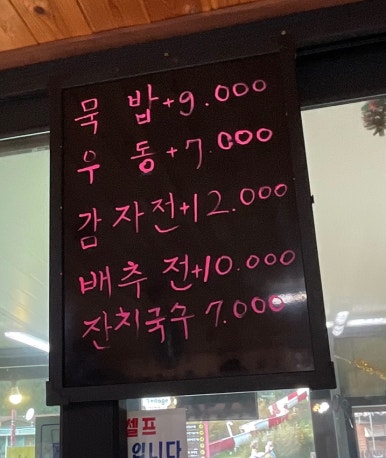 묵 밥+9.000
우 동+7.000
감자전+12.000
배추 전+10.000
잔치국수 7.000
셀프
입니다